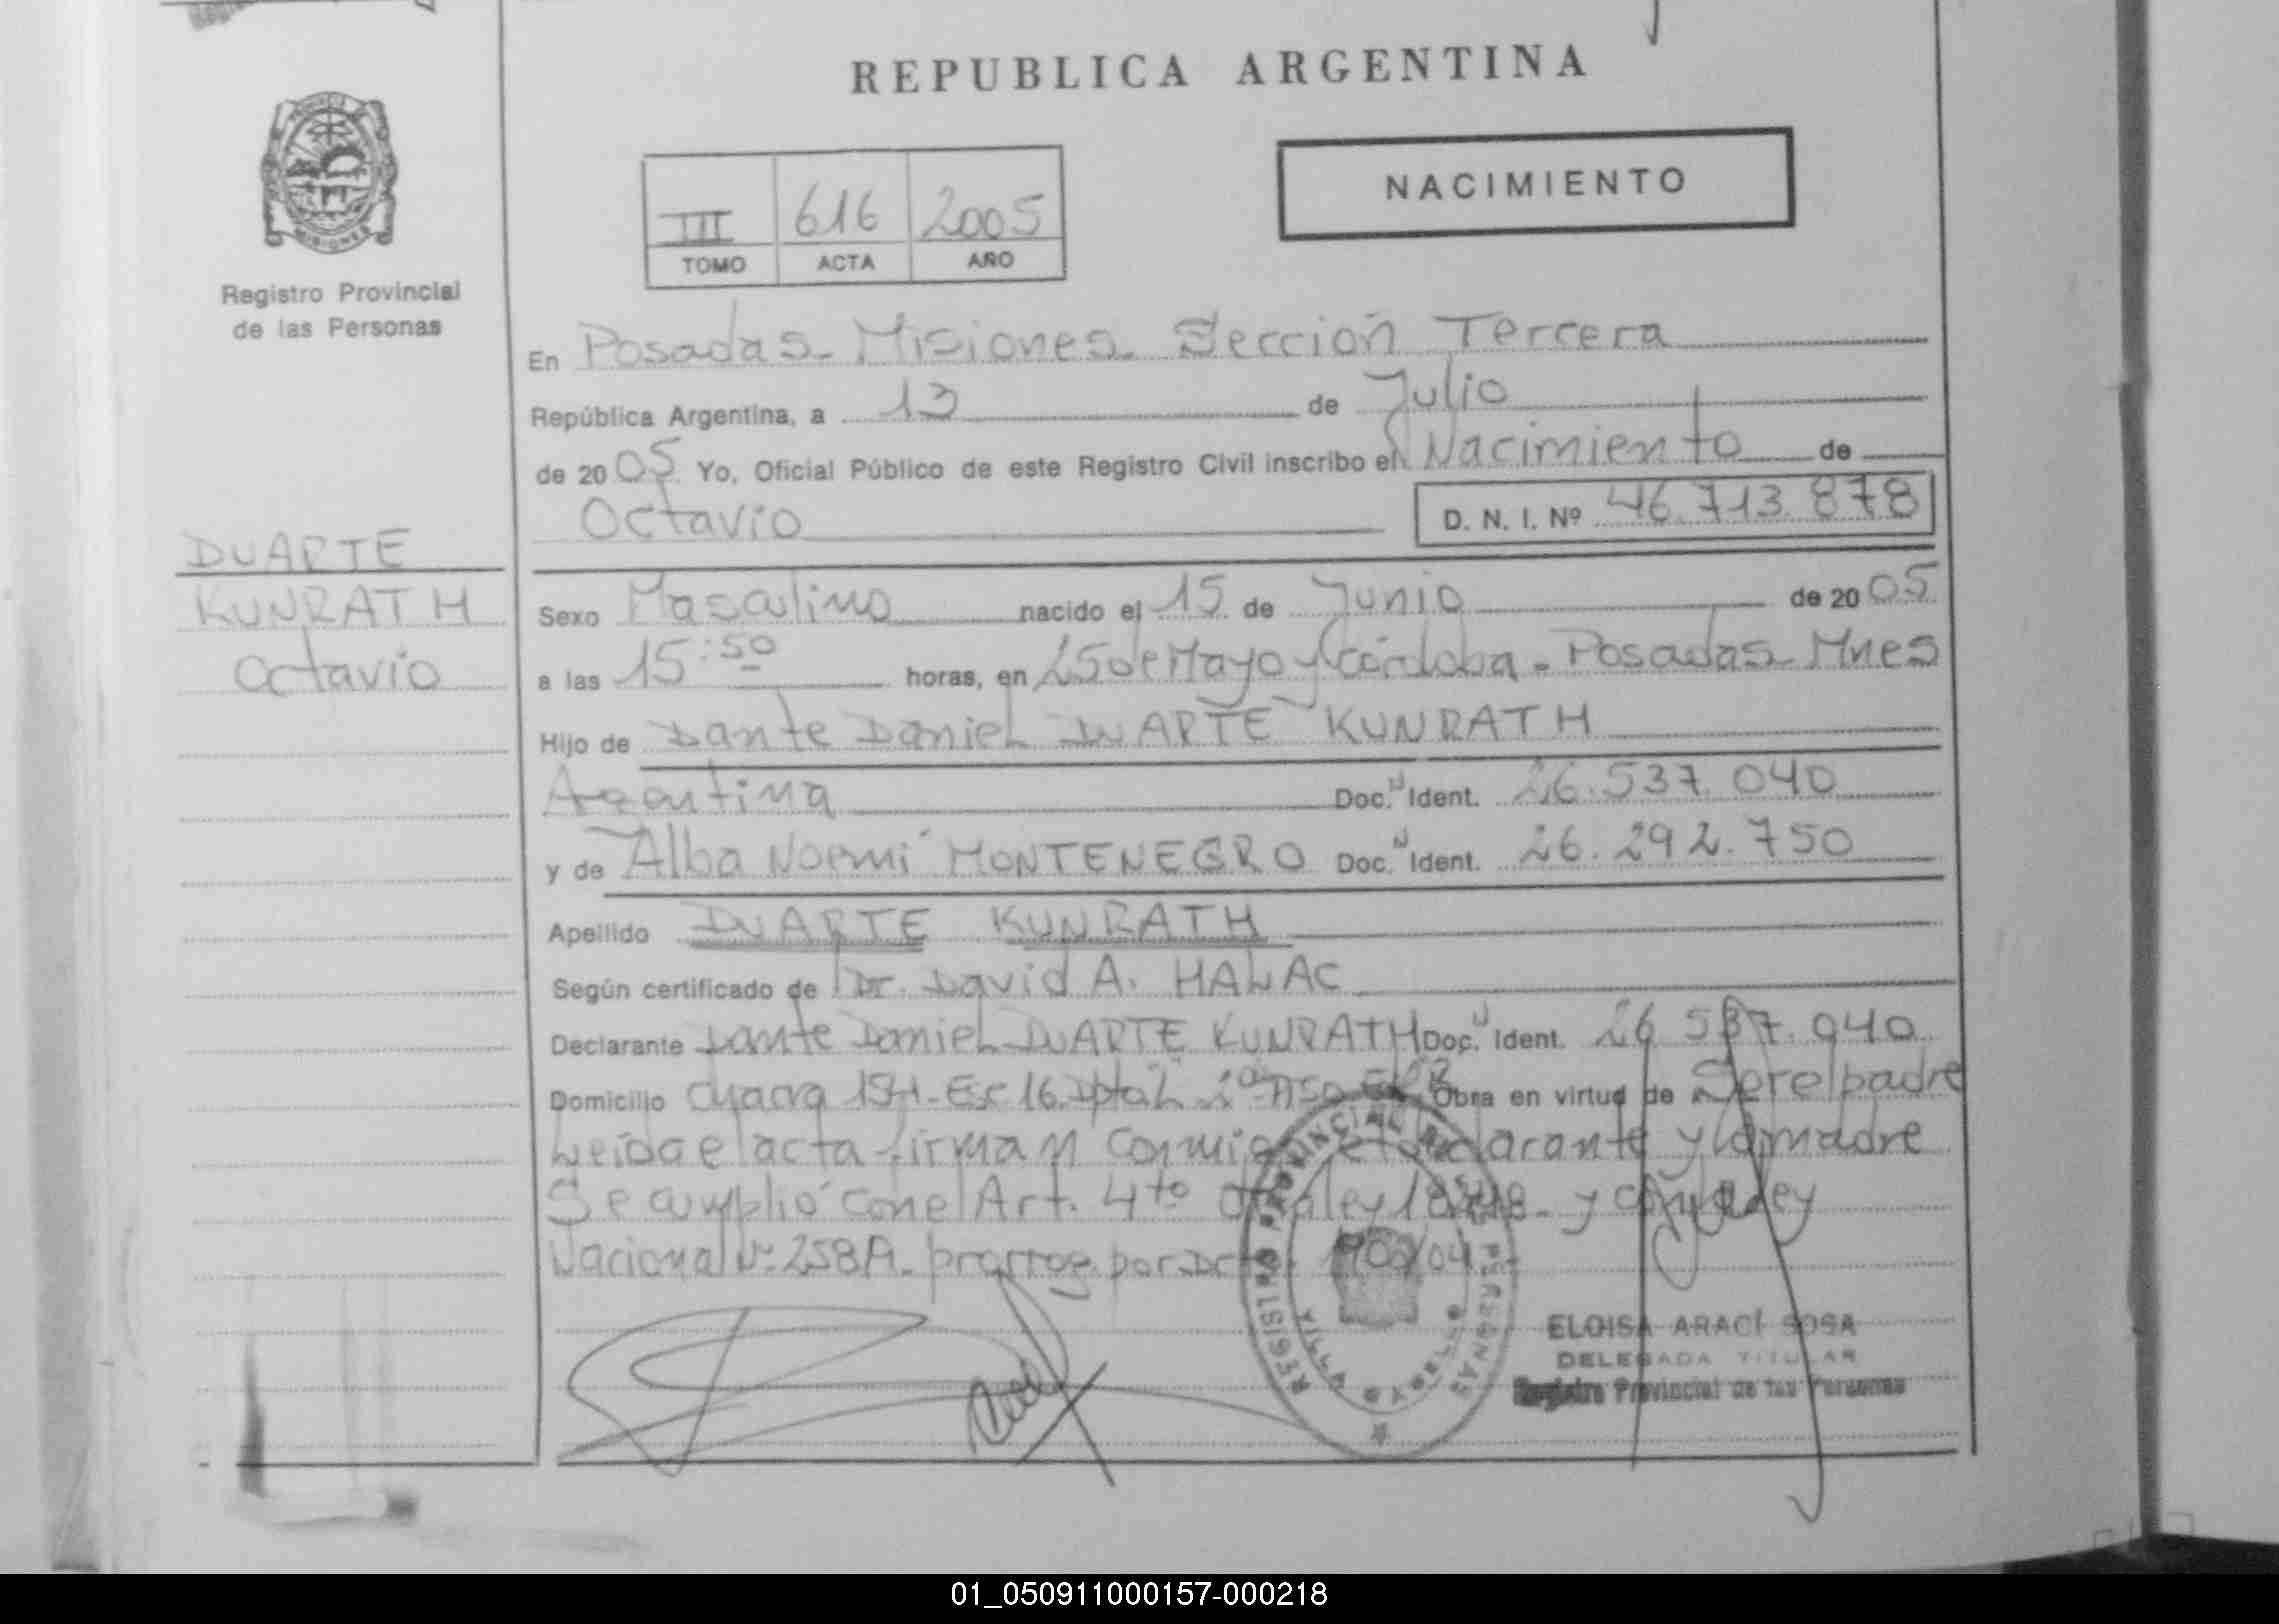 REPUBLICA ARGENTINA
NACIMIENTO
III 616 2005
TOMO ACTA AÑO
Registro Provincial
de las Personas
En Posadas - Misiones - Sección Tercera
República Argentina, a 13 de Julio
de 2005 Yo, Oficial Público de este Registro Civil inscribo el Nacimiento de
Octavio D. N. I. Nº 46.713.878
DUARTE
KUNRATH
Octavio
Sexo Masculino nacido el 15 de Junio de 2005
a las 15:50 horas, en 25 de Mayo y Córdoba - Posadas - Mnes
Hijo de Dante Daniel DUARTE KUNRATH
Argentina Doc. N Ident. 26.537.040
y de Alba Noemí MONTENEGRO Doc. N Ident. 26.292.750
Apellido DUARTE KUNRATH
Según certificado de Dr. David A. HALAC
Declarante Dante Daniel DUARTE KUNRATH Doc. N Ident. 26.537.040
Domicilio Chacra 154 - Esc 16. Obra en virtud de Ser el padre
Leida el acta firman conmigo el declarante y la madre
Se cumplió con el Art. 4to de la ley y con la ley
Nacional Nº 258A - prorrog. por 1900/04
REGISTRO PROVINCIAL DE LAS PERSONAS
VILLA
ELOISA ARACÍ SOSA
DELEGADA TITULAR
Registro Provincial de las Personas
01_050911000157-000218